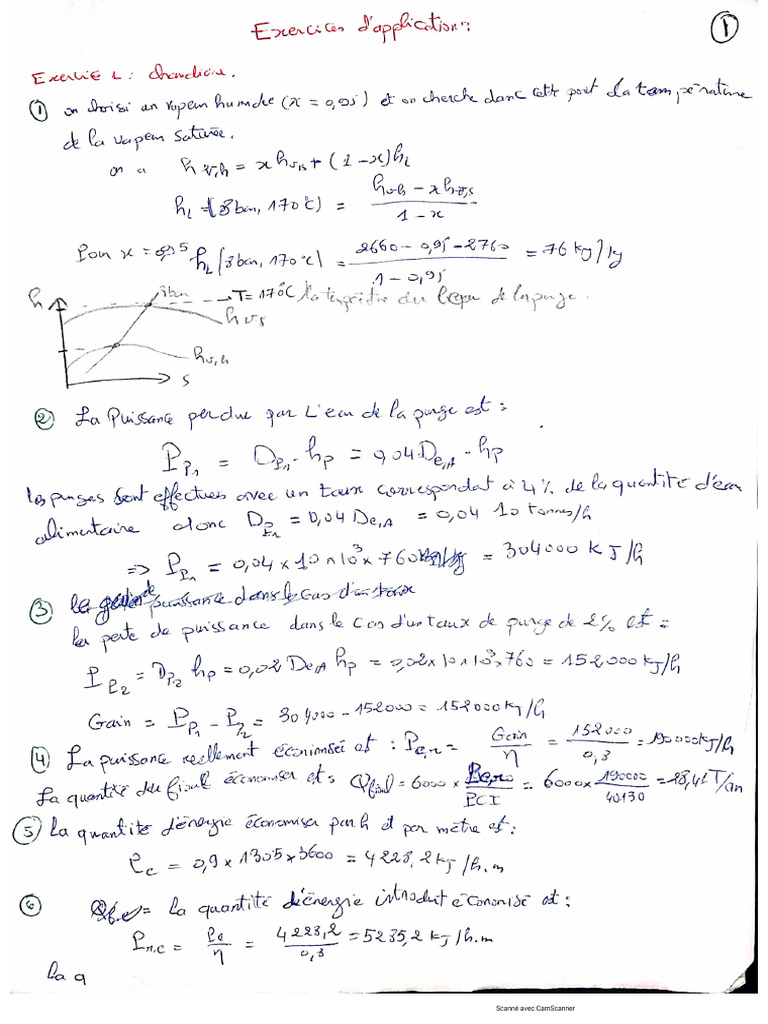 Exercices d'application:
1
Exercice 1: chaudière.
① on choisi un vapeur humide (x = 0,95) et on cherche dans cette port la température
de la vapeur saturée.
on a h v,h = x h v,s + (1-x) h L
h L (8 bar, 170°C) = (h v,h - x h v,s) / (1 - x)
Pour x = 0,95 h L (8 bar, 170°C) = (2660 - 0,95 - 2760) / (1 - 0,95) = 76 kJ/kg
h 8 bar T = 170°C la température du l'eau de la purge.
h v,s
h v,h
s
② La Puissance perdue par L'eau de la purge est:
P P1 = D P1 . h P = 0,04 D e,A . h P
les purges sont effectues avec un taux correspondat à 4% de la quantité d'eau
alimentaire donc D P1 = 0,04 D e,A = 0,04 10 tonnes/h
=> P P1 = 0,04 x 10 x 10³ x 760 = 304000 KJ/h
③ puissance dans le cas d'un taux
la perte de puissance dans le cas d'un taux de purge de 2% est:
P P2 = D P2 h P = 0,02 D e,A h P = 0,02 x 10 x 10³ x 760 = 152000 KJ/h
Gain = P P1 - P P2 = 304000 - 152000 = 152000 KJ/h
④ La puissance reellement économisé est: P e,r = Gain / η = 152000 / 0,8 = 190000 KJ/h
La quantité du fioul économiser est: Q fioul = 6000 x P e,r / PCI = 6000 x 190000 / 40130 = 28,41 T/an
⑤ La quantité d'énergie économiser par h et par mètre est:
P c = 0,9 x 1305 x 3600 = 4228,2 KJ/h.m
⑥ = la quantité d'énergie introduit économisé est:
P r,c = P c / η = 4228,2 / 0,8 = 5235,2 KJ/h.m
La q
Scanné avec CamScanner